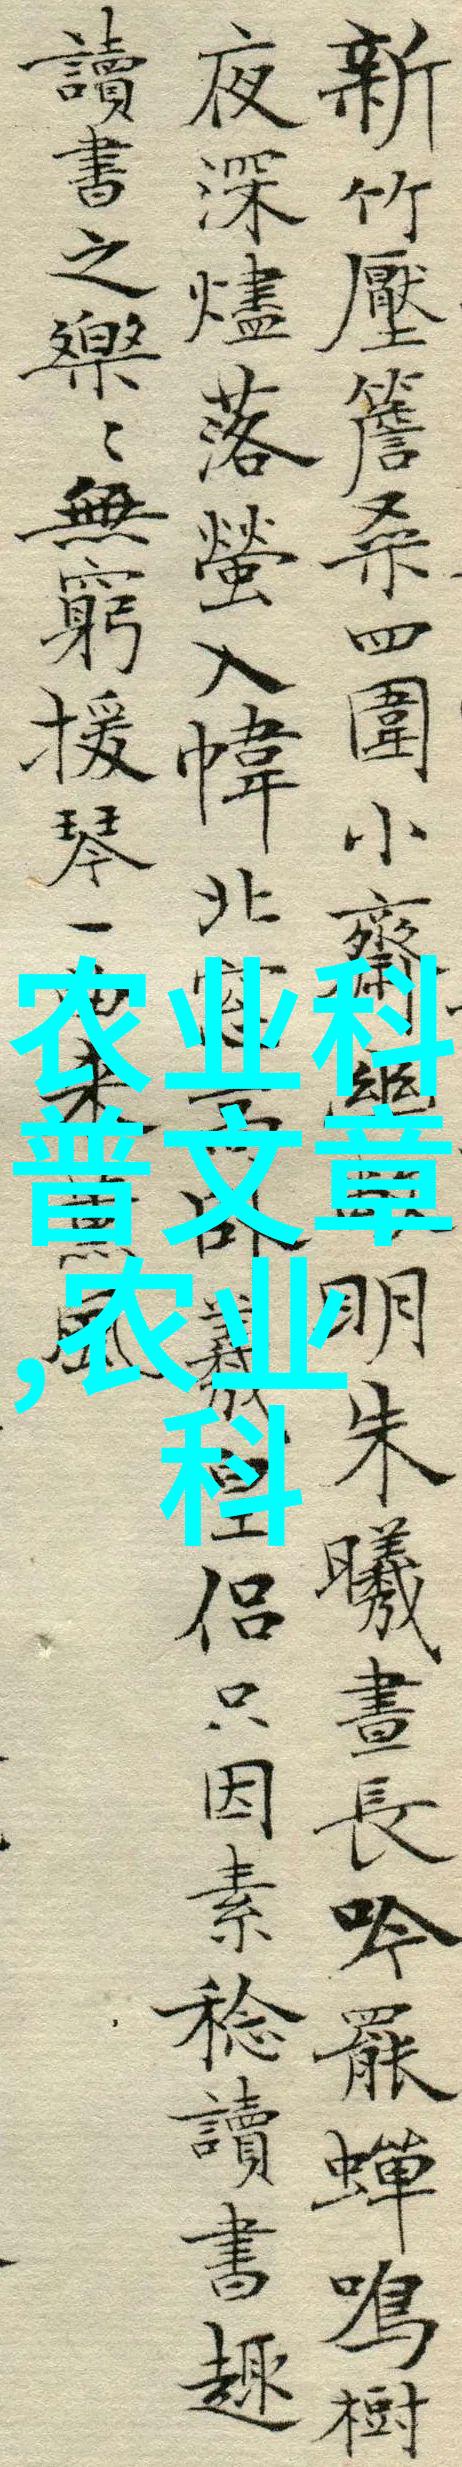 新竹壓簷桑四圍小齋明朱曦晝長吟罷蟬鳴樹
夜深燼落螢入幃北窓卧羲皇侶只因素稔讀書趣
讀書之樂〻無窮援琴一來薰風
农业科
普文章
,农业
科